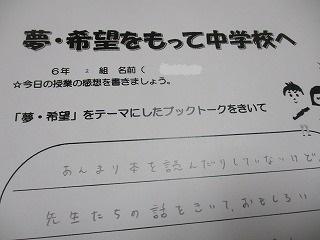 夢・希望をもって中学校へ
6年 2 組 名前(
☆今日の授業の感想を書きましょう。
「夢・希望」をテーマにしたブックトークをきいて
あんまり本を読んだりしていないけど、
先生たちの話をきいて、おもしろい